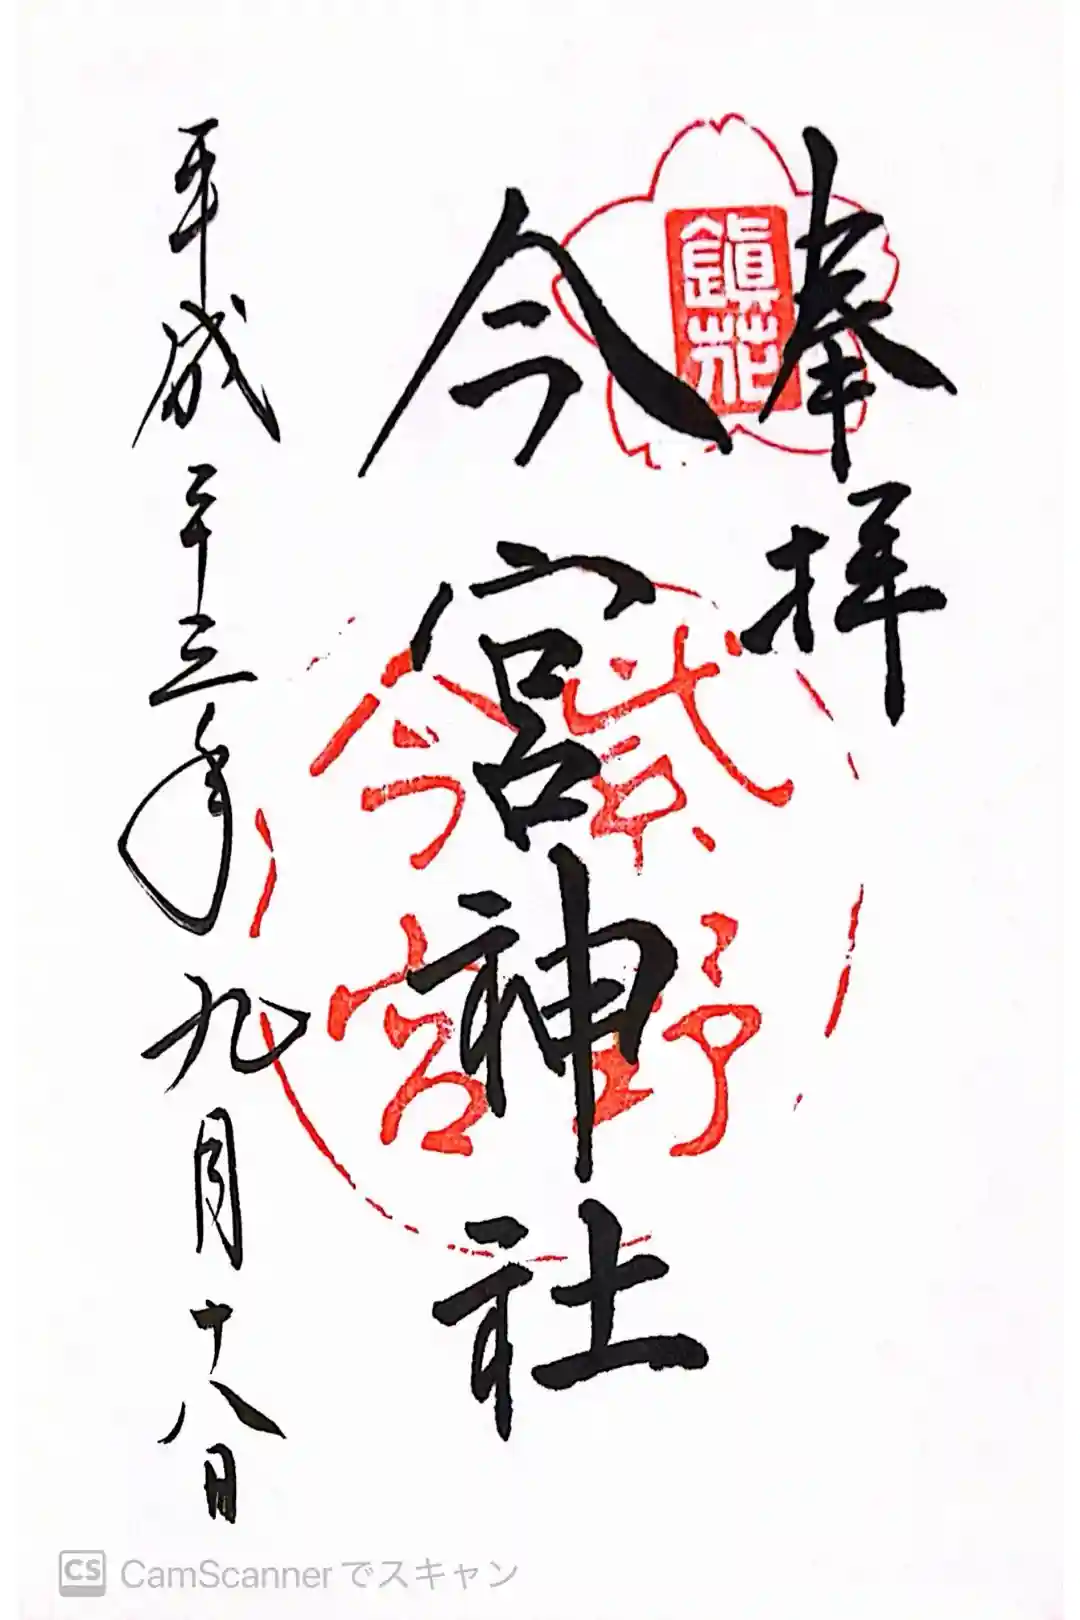 奉拝
鎮花
今宮神社
紫野
今宮
平成二十三年九月十八日
CS CamScannerでスキャン